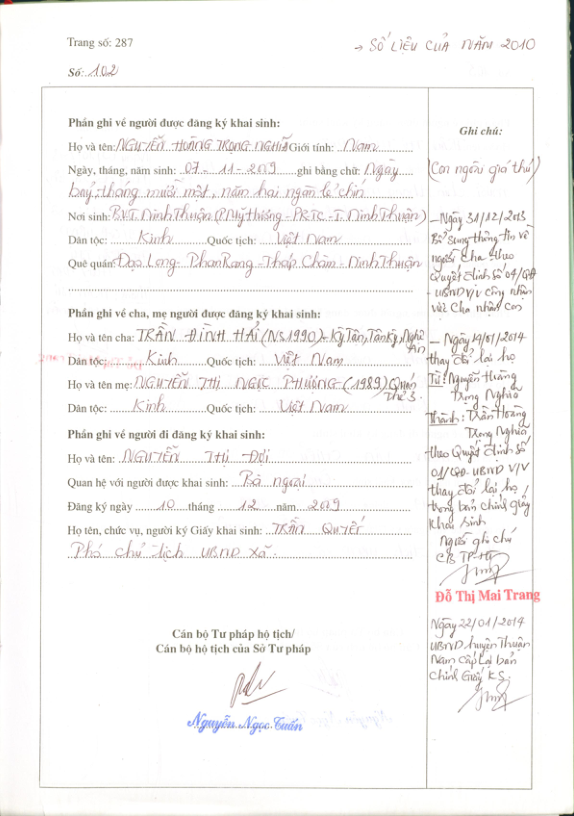 Trang số: 287
→ SỐ LIỆU CỦA NĂM 2010
Số: 102
Phần ghi về người được đăng ký khai sinh:
Họ và tên: NGUYỄN HOÀNG TRỌNG NGHĨA Giới tính: Nam
Ngày, tháng, năm sinh: 07 - 11 - 2009 ghi bằng chữ: Ngày
bảy, tháng mười một, năm hai ngàn lẻ chín
Nơi sinh: B.V.T. Ninh Thuận (P. Mỹ Hương - PR-TC - T. Ninh Thuận)
Dân tộc: Kinh Quốc tịch: Việt Nam
Quê quán: Đạo Long - Phan Rang - Tháp Chàm - Ninh Thuận
Phần ghi về cha, mẹ người được đăng ký khai sinh:
Họ và tên cha: TRẦN ĐÌNH HẢI (NS 1990) - Kỳ Tân, Tân Kỳ, Nghệ An
Dân tộc: Kinh Quốc tịch: Việt Nam
Họ và tên mẹ: NGUYỄN THỊ NGỌC PHƯỢNG (1989) Quán Thẻ 3.
Dân tộc: Kinh Quốc tịch: Việt Nam
Phần ghi về người đi đăng ký khai sinh:
Họ và tên: NGUYỄN THỊ ĐỢI
Quan hệ với người được khai sinh: Bà ngoại
Đăng ký ngày 10 tháng 12 năm 2009
Họ tên, chức vụ, người ký Giấy khai sinh: TRẦN QUYẾT
Phó chủ tịch UBND xã.
Cán bộ Tư pháp hộ tịch/
Cán bộ hộ tịch của Sở Tư pháp
Nguyễn Ngọc Tuấn
Ghi chú:
(Con ngoài giá thú)
- Ngày 31/12/2013
Bổ sung thông tin về
người cha theo
Quyết định số 04/QĐ
- UBND V/v công nhận
việc cha nhận con
- Ngày 19/01/2014
thay đổi lại họ
Từ: Nguyễn Hoàng
Trọng Nghĩa
Thành: Trần Hoàng
Trọng Nghĩa
theo Quyết định số
01/QĐ. UBND V/V
thay đổi lại họ
trong bản chính giấy
khai sinh
Người ghi chú
CB TP-HT
Đỗ Thị Mai Trang
Ngày 22/01/2014
UBND huyện Thuận
Nam cấp lại bản
chính Giấy KS.